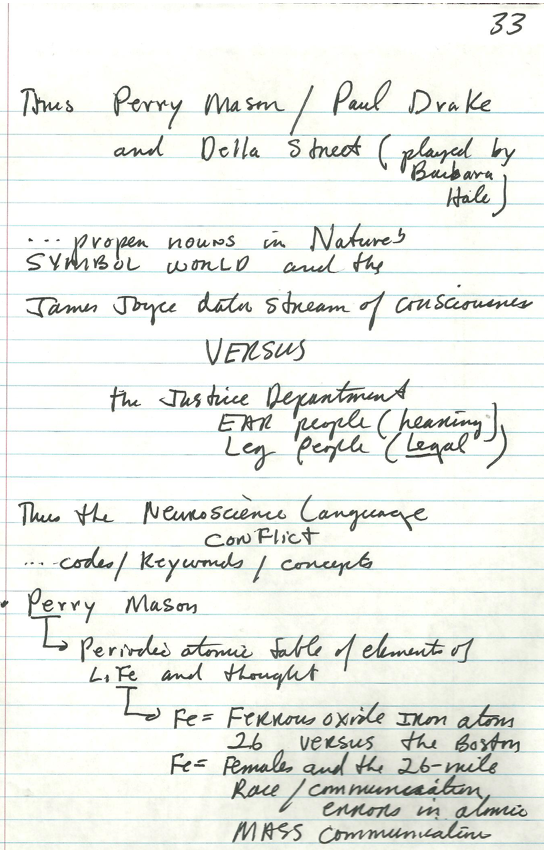 33
Thus Perry Mason / Paul Drake
and Della Street (played by
Barbara
Hale)
... proper nouns in Nature's
SYMBOL WORLD and the
James Joyce data stream of consciousness
VERSUS
the Justice Department
EAR people (hearing)
Leg People (Legal)
Thus the Neuroscience Language
CONFLICT
... codes / Keywords / concepts
• Perry Mason
↳ Periodic atomic table of elements of
LiFe and thought
↳ Fe = Ferrous oxide Iron atom
26 versus the Boston
Fe = Females and the 26-mile
Race / communication
errors in atomic
MASS communication